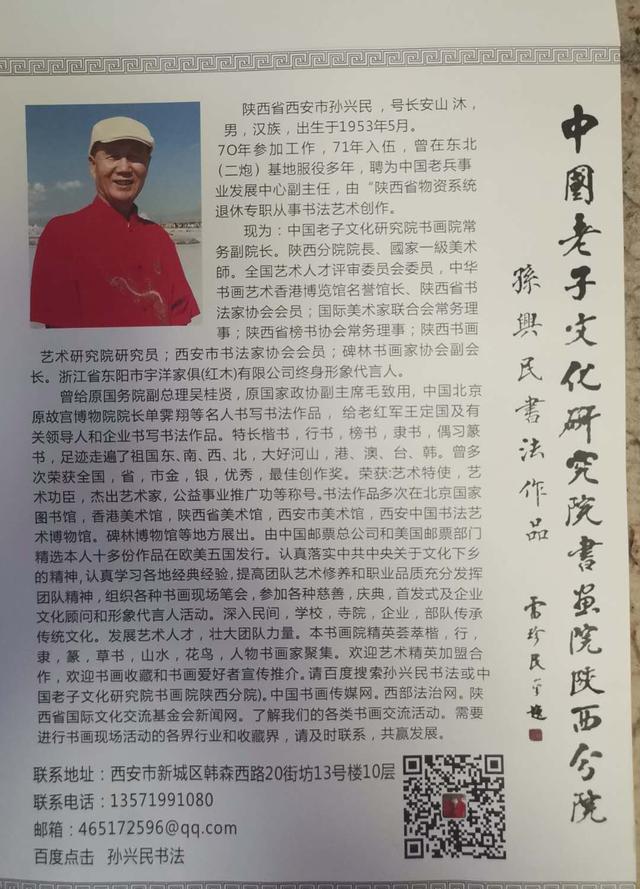 陕西省西安市孙兴民，号长安山沐，
男，汉族，出生于1953年5月。
70年参加工作，71年入伍，曾在东北
（二炮）基地服役多年，聘为中国老兵事
业发展中心副主任，由“陕西省物资系统
退休专职从事书法艺术创作。
现为：中国老子文化研究院书画院常
务副院长。陕西分院院長、國家一級美术
師。全国艺术人才评审委员会委员，中华
书画艺术香港博览馆名誉馆长、陕西省书
法家协会会员；国际美术家联合会常务理
事；陕西省榜书协会常务理事；陕西书画
艺术研究院研究员；西安市书法家协会会员；碑林书画家协会副会
长。浙江省东阳市宇洋家俱(红木)有限公司终身形象代言人。
曾给原国务院副总理吴桂贤，原国家政协副主席毛致用，中国北京
原故宫博物院院长单霁翔等名人书写书法作品，给老红军王定国及有
关领导人和企业书写书法作品。特长楷书，行书，榜书，隶书，偶习篆
书，足迹走遍了祖国东、南、西、北，大好河山，港、澳、台、韩。曾多
次荣获全国，省，市金，银，优秀，最佳创作奖。荣获:艺术特使，艺
术功臣，杰出艺术家，公益事业推广功等称号。书法作品多次在北京国家
图书馆，香港美术馆，陕西省美术馆，西安市美术馆，西安中国书法艺
术博物馆。碑林博物馆等地方展出。由中国邮票总公司和美国邮票部门
精选本人十多份作品在欧美五国发行。认真落实中共中央关于文化下乡
的精神，认真学习各地经典经验，提高团队艺术修养和职业品质充分发挥
团队精神，组织各种书画现场笔会，参加各种慈善，庆典，首发式及企业
文化顾问和形象代言人活动。深入民间，学校，寺院，企业，部队传承
传统文化。发展艺术人才，壮大团队力量。本书画院精英荟萃楷，行，
隶，篆，草书，山水，花鸟，人物书画家聚集。欢迎艺术精英加盟合
作，欢迎书画收藏和书画爱好者宣传推介。请百度搜索孙兴民书法或中
国老子文化研究院书画院陕西分院)。中国书画传媒网。西部法治网。陕
西省国际文化交流基金会新闻网。了解我们的各类书画交流活动。需要
进行书画现场活动的各界行业和收藏界，请及时联系，共赢发展。
联系地址：西安市新城区韩森西路20街坊13号楼10层
联系电话：13571991080
邮箱：465172596@qq.com
百度点击 孙兴民书法
中國老子文化研究院書画院陕西分院
孫興民書法作品
雷珍民